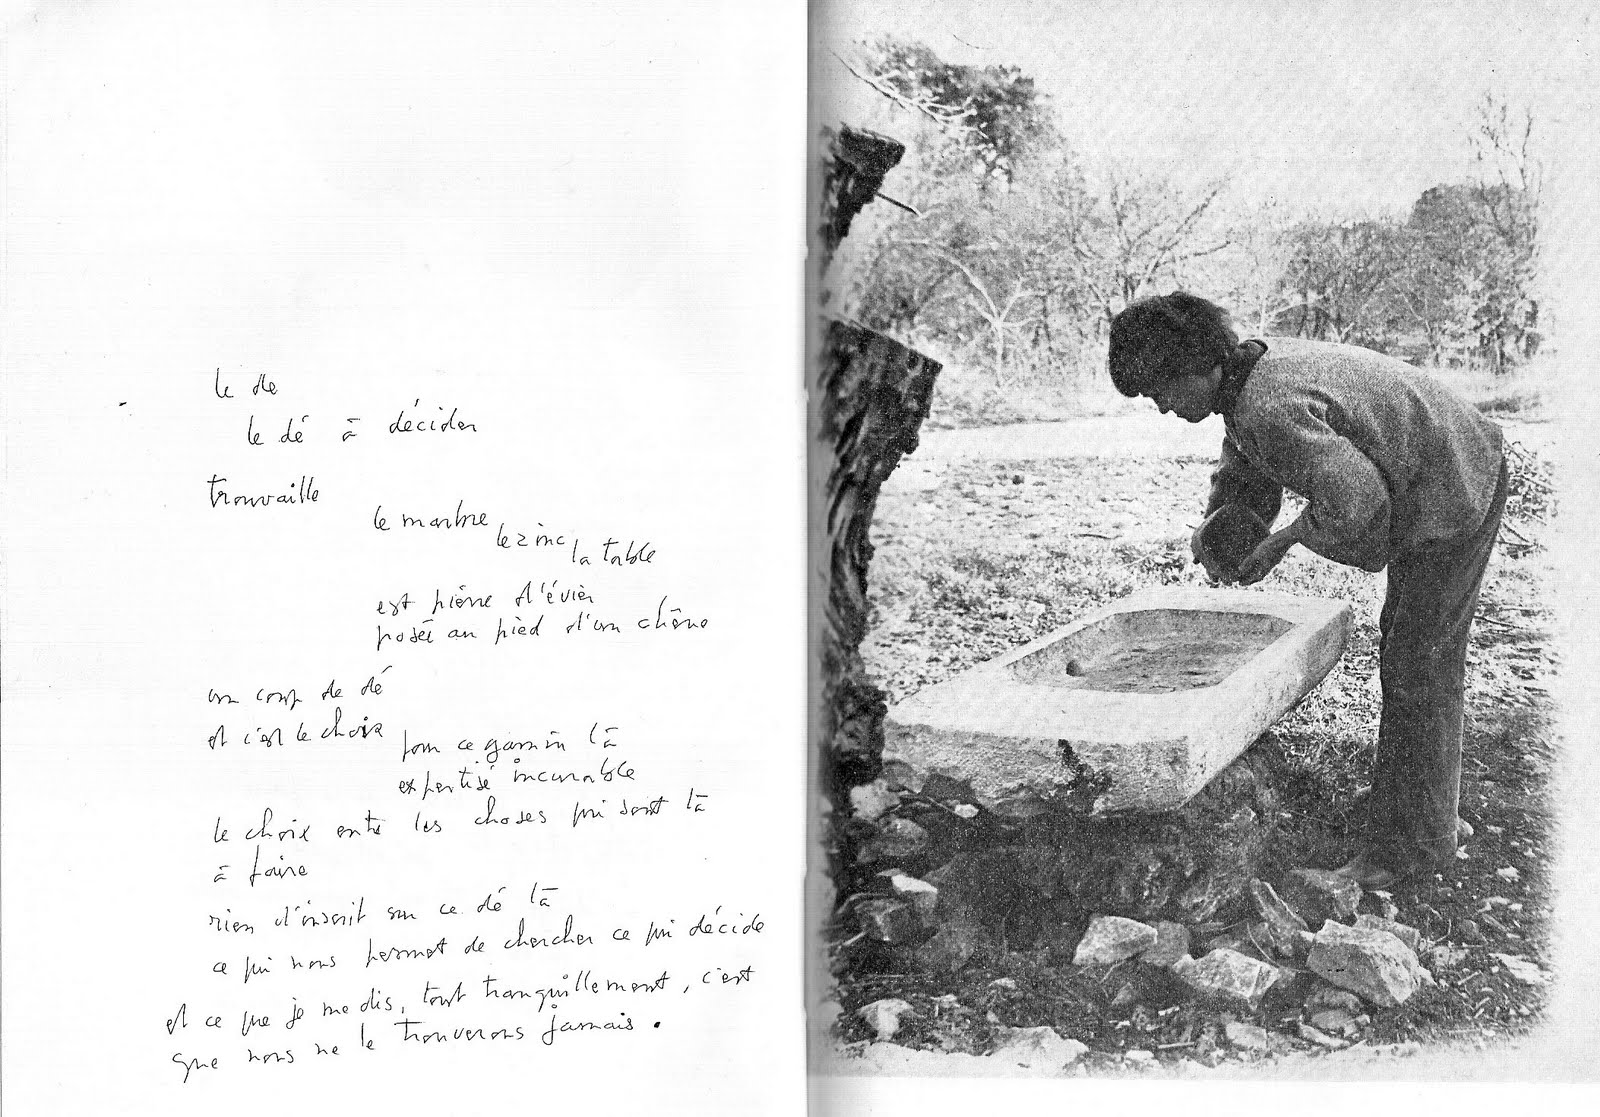 le de
le dé à décider
trouvaille
le marbre
le zinc
la table
est pierre d'évier
posée au pied d'un chêne
un coup de dé
et c'est le choix
pour ce gamin là
expertisé incurable
le choix entre les choses qui sont là
à faire
rien d'inscrit sur ce dé là
ce qui nous permet de chercher ce qui décide
et ce que je me dis, tout tranquillement, c'est
que nous ne le trouverons jamais.